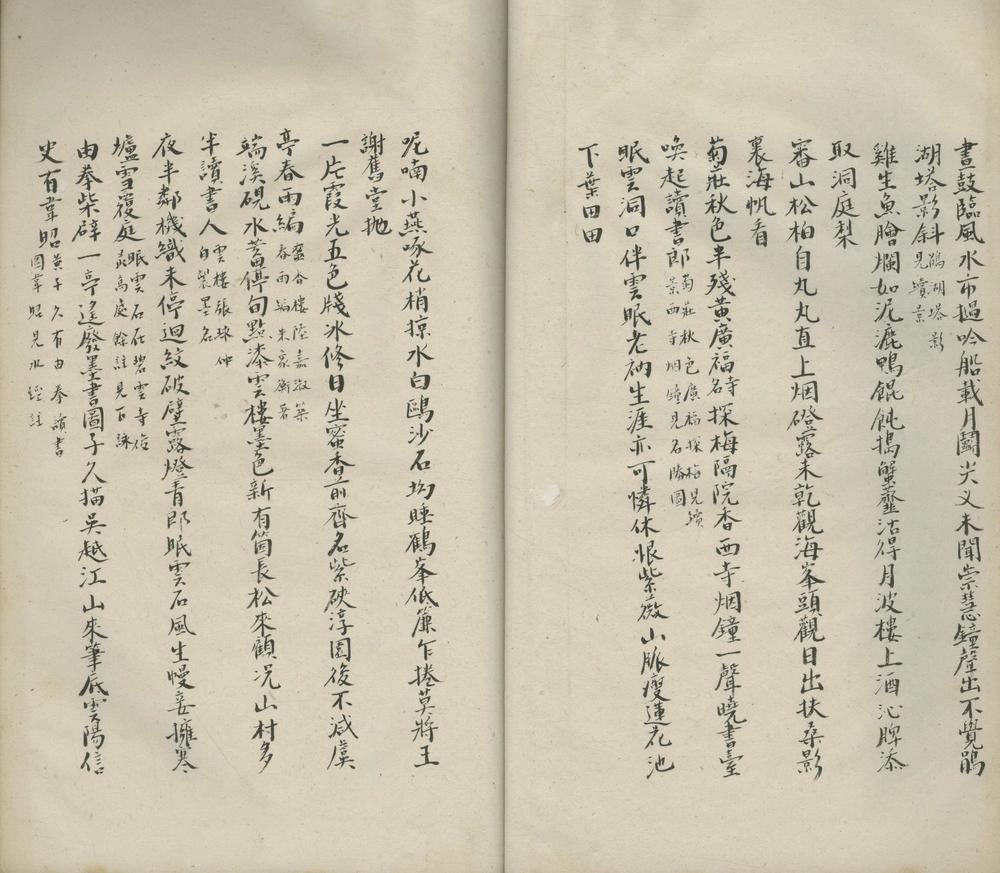 畫鼓臨風水市撾吟船載月鬬尖叉未聞崇慧鐘聲出不覺鵑
湖塔影斜鵑湖塔影見續景
雞生魚膾爛如泥漉鴨餛飩擣蟹虀沽得月波樓上酒沁脾添
取洞庭梨
審山松柏自丸丸直上烟磴露未乾觀海峯頭觀日出扶桑影
裏海帆看
菊莊秋色半殘黃廣福寺名探梅隔院香西寺烟鐘一聲曉書臺
喚起讀書郎菊莊秋色廣福探梅見續景西寺烟鐘見石勝圖
眠雲洞口伴雲眠老衲生涯亦可憐休恨紫薇山脈瘦蓮花池
下葉田田
呢喃小燕啄花梢掠水白鷗沙石坳睡鶴峯低簾乍捲莫將王
謝舊堂拋
一片霞光五色牋冰修日坐蜜香前齊名紫硤淳園後不減虞
亭春雨編蜜香樓陸嘉淑築春雨編朱嘉衡著
端溪硯水蓄停旬點漆雲樓墨色新有箇長松來顧况山村多
半讀書人雲樓張球仲自製墨名
夜半鄰機織未停迴紋破壁露燈青郎眠雲石風生幔妾擁寒
壚雪覆庭眠雲石在碧雲寺後高庭餘註見百詠
由拳柴辟一亭逵廢墨書圖子久描吳越江山來筆底雲陽信
史有韋昭黃子久有由拳讀書圖韋昭見水經註